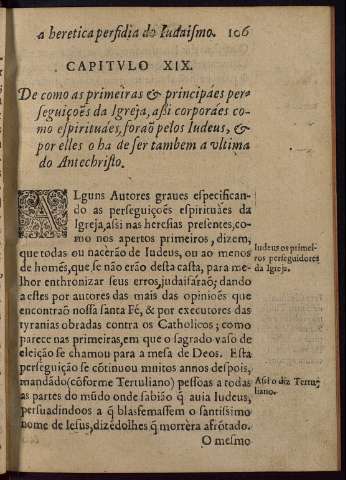 a heretica perfidia do Iudaismo. 106
CAPITVLO XIX.
De como as primeiras & principáes per-
seguiçoẽs da Igreja, assi corporáes co-
mo espirituáes, foraõ pelos Iudeus, &
por elles o ha de ser tambem a vltima
do Antechristo.
ALguns Autores graues especifican-
do as perseguiçoẽs espirituáes da
Igreja, assi nas heresias presentes, co-
mo nos apertos primeiros, dizem,
que todas ou nacerão de Iudeus, ou ao menos
de homẽs, que se não erão desta casta, para me-
lhor enthronizar seus erros, judaisarão; dando
a estes por autores das mais das opinioẽs que
encontraõ nossa santa Fé, & por executores das
tyranias obradas contra os Catholicos; como
parece nas primeiras, em que o sagrado vaso de
eleição se chamou para a mesa de Deos. Esta
perseguição se cõtinuou muitos annos despois,
mandãdo (cõforme Tertuliano) pessoas a todas
as partes do mũdo onde sabião q̃ auia Iudeus,
persuadindoos a q̃ blasfemassem o santissimo
nome de Iesus, dizẽdolhes q̃ morrèra afrõtado.
O mesmo
Iudeus os primei-
ros perseguidores
da Igreja.
Assi o diz Tertu-
liano.